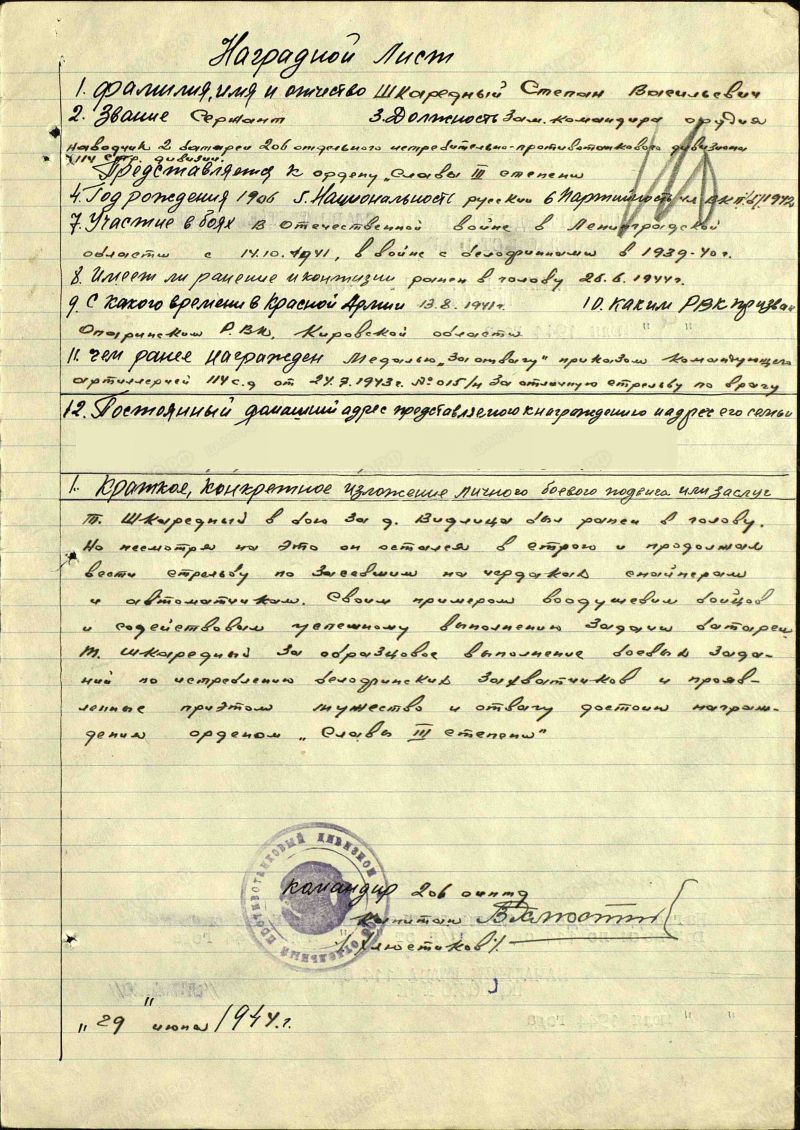 Наградной Лист
1. Фамилия, имя и отчество Шкаредный Степан Васильевич
2. Звание Сержант 3. Должность Зам. командира орудия
наводчик 2 батареи 206 отдельного истребительно-противотанкового дивизиона
114 стр. дивизии.
Представляется к ордену „Славы III степени
4. Год рождения 1906 5. Национальность русский 6 Партийность чл. ВКП/б/
7. Участие в боях В Отечественной войне в Ленинградской
области с 14.10.1941, в войне с белофиннами в 1939-40 г.
8. Имеет ли ранение и контузии ранен в голову 26.6.1944 г.
9. С какого времени в Красной Армии 13.8.1941 г. 10. каким РВК призван
Опаринским Р.В.К. Кировской области
11. Чем ранее награжден Медалью „За отвагу" приказом командующего
артиллерией 114 с.д от 24.9.1943 г. № 015/н за отличную стрельбу по врагу
12. Постоянный домашний адрес представляемого к награждению и адрес его семьи
1. Краткое, конкретное изложение личного боевого подвига или заслуг
Т. Шкаредный в бою за д. Видлица был ранен в голову.
Но несмотря на это он остался в строю и продолжал
вести стрельбу по засевшим на чердаках снайперам
и автоматчикам. Своим примером воодушевил бойцов
и содействовал успешному выполнению задачи батареи.
Т. Шкаредный за образцовое выполнение боевых зада-
ний по истреблению белофинских захватчиков и прояв-
ленные приэтом мужество и отвагу достоин награж-
дения орденом „Славы III степени"
ОТДЕЛЬНЫЙ ПРОТИВОТАНКОВЫЙ ДИВИЗИОН
Командир 206 оиптд
Капитан
/Хлюстиков/.
„29" июня 1944 г.